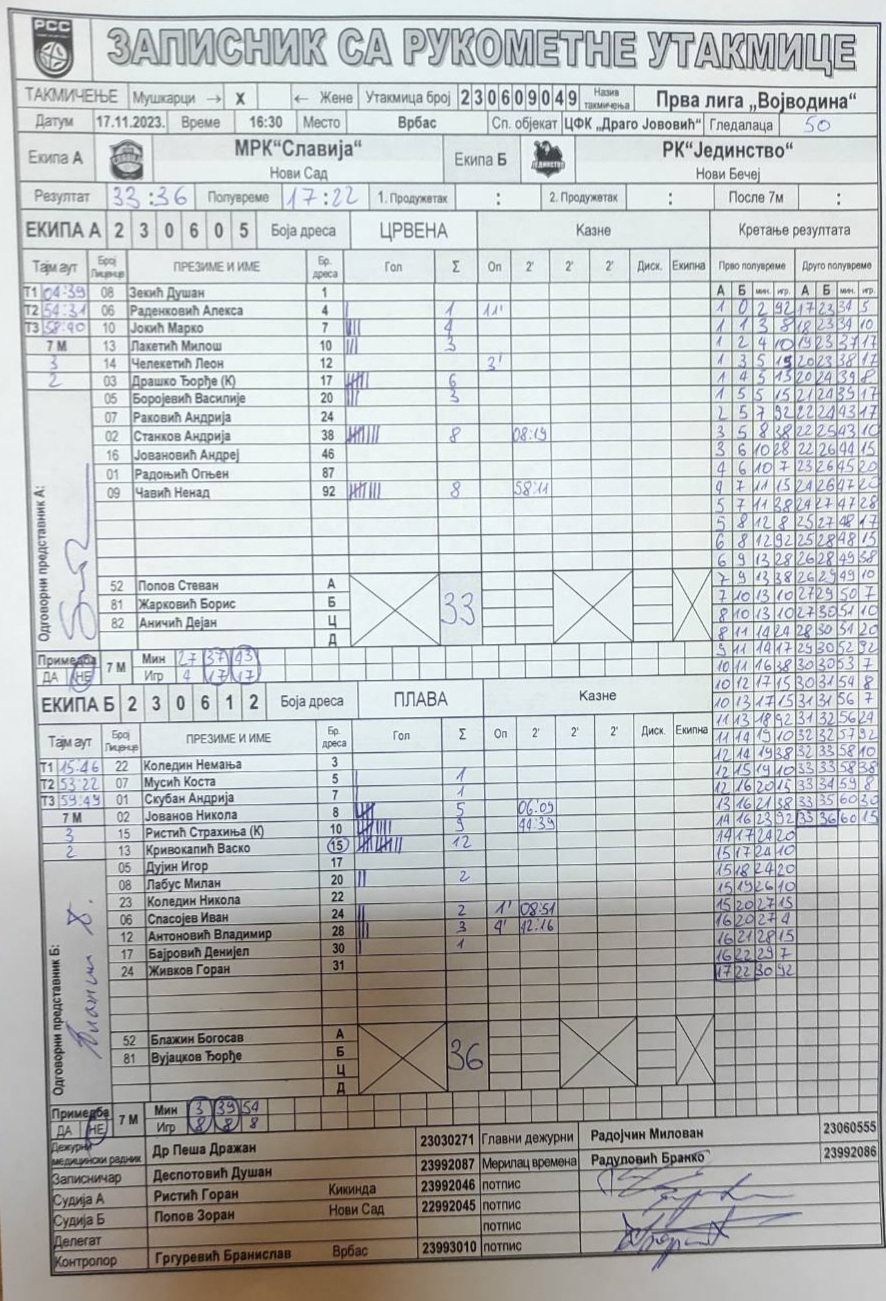 РСС
ЗАПИСНИК СА РУКОМЕТНЕ УТАКМИЦЕ
ТАКМИЧЕЊЕ Мушкарци → X ← Жене Утакмица број 230609049 Назив такмичења Прва лига „Војводина“
Датум 17.11.2023. Време 16:30 Место Врбас Сп. објекат ЦФК „Драго Јововић“ Гледалаца 50
Екипа А МРК“Славија“ Нови Сад Екипа Б РК“Јединство“ Нови Бечеј
Резултат 33:36 Полувреме 17:22 1. Продужетак : 2. Продужетак : После 7м :
ЕКИПА А 230605 Боја дреса ЦРВЕНА Казне Кретање резултата
Тајм аут Број Лиценце ПРЕЗИМЕ И ИМЕ Бр. дреса Гол Σ Оп 2' 2' 2' Диск. Екипна Прво полувреме Друго полувреме
А Б мин. игр. А Б мин. игр.
Т1 04:39 08 Зекић Душан 1
Т2 54:31 06 Раденковић Алекса 4 1 11'
Т3 58:40 10 Јокић Марко 7 4
7 М 13 Лакетић Милош 10 3
3 14 Челекетић Леон 12 3'
2 03 Драшко Ђорђе (К) 17 6
05 Боројевић Василије 20 3
07 Раковић Андрија 24
02 Станков Андрија 38 8 08:19
16 Јовановић Андреј 46
01 Радоњић Огњен 87
09 Чавић Ненад 92 8 58:11
Одговорни представник А:
52 Попов Стеван А
81 Жарковић Борис Б 33
82 Аничић Дејан Ц
Д
Примедба ДА НЕ 7 М Мин 27 37 43
Игр 4 17 17
ЕКИПА Б 230612 Боја дреса ПЛАВА Казне
Тајм аут Број Лиценце ПРЕЗИМЕ И ИМЕ Бр. дреса Гол Σ Оп 2' 2' 2' Диск. Екипна
Т1 15:46 22 Коледин Немања 3
Т2 53:22 07 Мусић Коста 5 1
Т3 59:49 01 Скубан Андрија 7 1
7 М 02 Јованов Никола 8 5 06:09
3 15 Ристић Страхиња (К) 10 9 44:39
2 13 Кривокапић Васко 15 12
05 Дујин Игор 17
08 Лабус Милан 20 2
23 Коледин Никола 22
06 Спасојев Иван 24 2 1' 08:51
12 Антоновић Владимир 28 3 4' 12:16
17 Бајровић Денијел 30 1
24 Живков Горан 31
Одговорни представник Б:
52 Блажин Богосав А
81 Вујацков Ђорђе Б 36
Ц
Д
Примедба ДА НЕ 7 М Мин 3 39 54
Игр 8 8 8
1 0 2 92 17 23 34 5
1 1 3 8 18 23 34 10
1 2 4 10 19 23 37 17
1 3 5 15 20 23 38 17
1 4 5 15 20 24 39 8
1 5 5 15 21 24 39 17
2 5 7 92 22 24 43 17
3 5 8 38 22 25 43 10
3 6 10 28 22 26 44 15
4 6 10 7 23 26 45 20
4 7 11 15 24 26 47 20
5 7 11 38 24 27 47 28
5 8 12 8 25 27 48 17
6 8 12 92 25 28 48 15
6 9 13 28 26 28 49 38
7 9 13 38 26 29 49 10
7 10 13 10 27 29 50 7
8 10 13 10 27 30 51 10
8 11 14 24 28 30 51 20
9 11 14 17 29 30 52 92
10 11 16 38 30 30 53 7
10 12 17 15 30 31 54 8
10 13 17 15 31 31 56 7
11 13 18 92 31 32 56 24
11 14 19 10 32 32 57 92
12 14 19 38 32 33 58 10
12 15 19 10 33 33 58 38
12 16 20 15 33 34 59 8
13 16 21 38 33 35 60 30
14 16 23 92 33 36 60 15
14 17 24 20
15 17 24 10
15 18 24 20
15 19 26 10
15 20 27 15
16 20 27 4
16 21 28 15
16 22 29 7
17 22 30 92
Дежурни медицински радник Др Пеша Дражан 23030271 Главни дежурни Радојчин Милован 23060555
Записничар Деспотовић Душан 23992087 Мерилац времена Радуловић Бранко 23992086
Судија А Ристић Горан Кикинда 23992046 потпис
Судија Б Попов Зоран Нови Сад 22992045 потпис
Делегат потпис
Контролор Гргуревић Бранислав Врбас 23993010 потпис